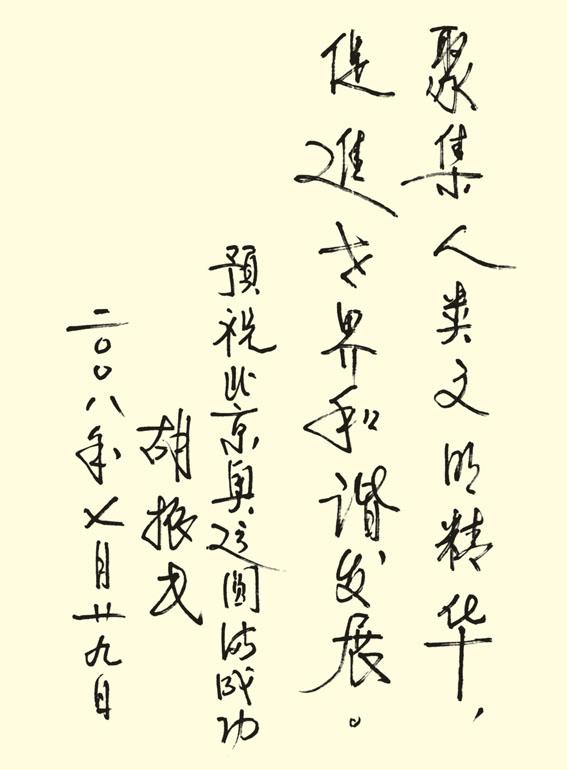 聚集人类文明精华，
促進世界和谐发展。
预祝北京奥运圆满成功
胡振民
二〇〇八年七月廿九日